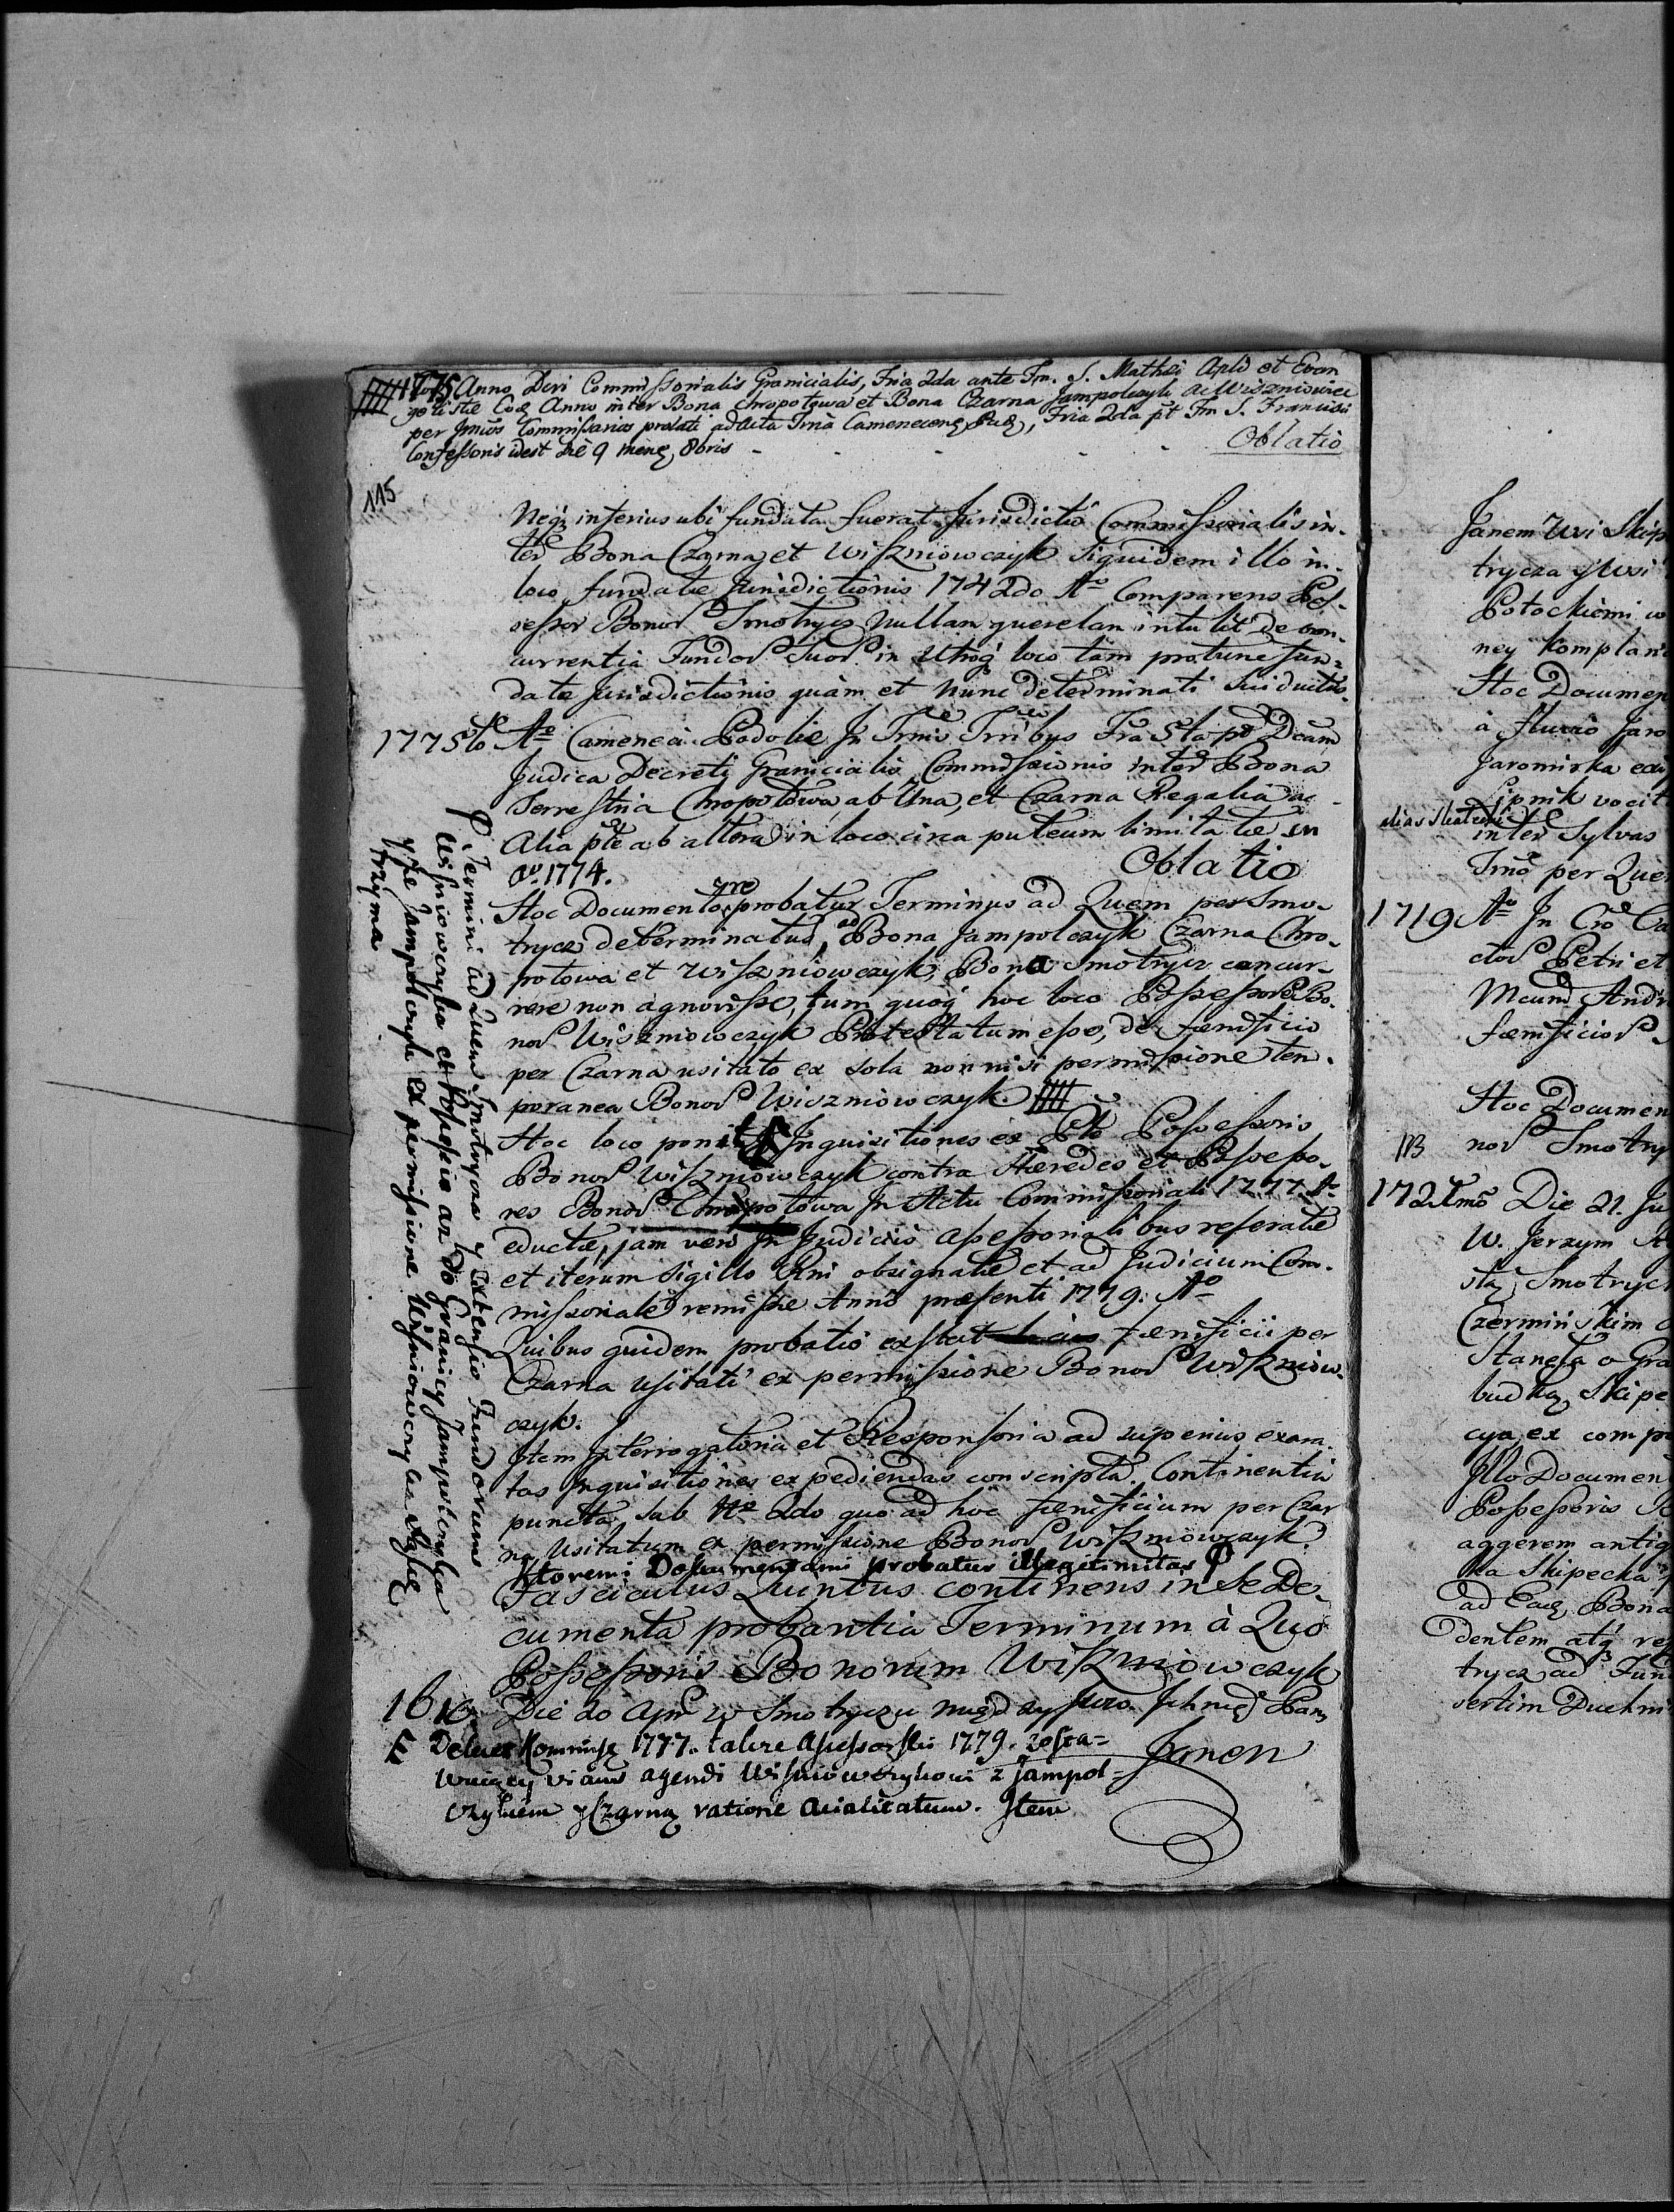 1775 Anno Dcri Commissorialis Granicialis, Fria 2da ante Fm. S. Mathei Apli et Evan
gelistæ Eod Anno inter Bona Chropotowa et Bona Czarna Jampolczyk ac Wiszniowiec
per Commissarios prolati ad Acta Camenecen, Fria 2da pt Fm S. Francisci
Confessoris idest die 9 8bris - - - - - Oblatio
115
Neq3 inferius ubi fundata fuerat Jurisdictio Commissorialis in-
ter Bona Czarna et Wiszniowczyk siquidem illo in
loco fundatæ Jurisdictionis 1742do Ao Comparens Pos-
sessor Bonor Smotrycz nullam querelam intulit de con-
currentia Fundor suor in utroq loco tam protunc fun-
datæ Jurisdictionis quàm et nunc determinati sui ductus.
1775to Ao Cameneci Podoliæ Jn Fria 5ta pt Dcam
Judica Decreti Granicialis Commissionis inter Bona
Terrestria Chropotowa ab Una, et Czarna Regalia ac
Alia pte ab altera in loco circa puteum limitatæ in
Ao. 1774. Oblatio
Hoc Documento probatur Terminus ad Quem per Smo-
trycz determinatus, ad Bona Jampolczyk Czarna Chro-
potowa et Wiszniowczyk, Bona Smotrycz concur-
rere non agnovisse, tum quoq hoc loco Possessorem Bo-
nor Wiszniowczyk Protestatum esse, de fænificio
per Czarna usitato ex sola nonnisi permissione tem-
poranea Bonor Wiszniowczyk.
Hoc loco ponit Jnquisitiones ex Pte Possessoris
Bonor Wiszniowczyk contra Hæredes et Possesso-
res Bonor Chropotowa Jn Actu Commissoriali 1777. Ao
eductæ, jam vero Jn Judiciis Assessorialibus reseratæ
et iterum Sigillo Rni obsignatæ et ad Judicium Com-
missoriale remissæ Anno præsenti 1779. Ao
Quibus quidem probatio exstat fænificii per
Czarna usitati ex permissione Bonor Wiszniow-
czyk.
Jtem Jnterrogatoria et Responsoria ad superius exara-
tas Jnquisitiones expediendas conscripta. Continentia
puncta sub No 2do quo ad hoc fænificium per Czar
na usitatum ex permissione Bonor Wiszniowczyk.
Ktoremi Dokumentami probatur illegitimitas
Fasciculus Quintus continens in se Do-
cumenta probantia Terminum à Quo
Possessoris Bonorum Wiszniowczyk
1616 Die 20 Apr w Smotryczu między Jchmcę Pan
Dekret Kommiss 1777. także Asessorski 1779. zosta=
wuiący viam agendi Wiszniowczykowi z Jampol=
czykiem y Czarną ratione Jtem
Janem
Termini ad Quem Smotrycza y Extensio Fundorum
Wiszniowczyka et Possessio az do Granicy Jampolczyka
yże Jampolczyk ex permissione Wiszniowczyka
trzyma
Janem Wsi Skip
trycza y Wsi
Potockiemi w
ney Komplan
Hoc Documen
à fluvio Jaro
Jaromirka
vocit
alias
inter Sylvas
per Que
1719 Ao Jn
ctor Petri et
Andr
fænificior
Hoc Documen
113
nor Smotry
172 Die 21. Ju
W. Jerzym
stą Smotryc
Czerminskim
Staneła o Gra
budką Skipe
cya ex comp
Jllo Documen
Possessoris
aggerem antiq
ka Skipecka
ad Bona
dentem atq re
trycz ad Fun
sertim